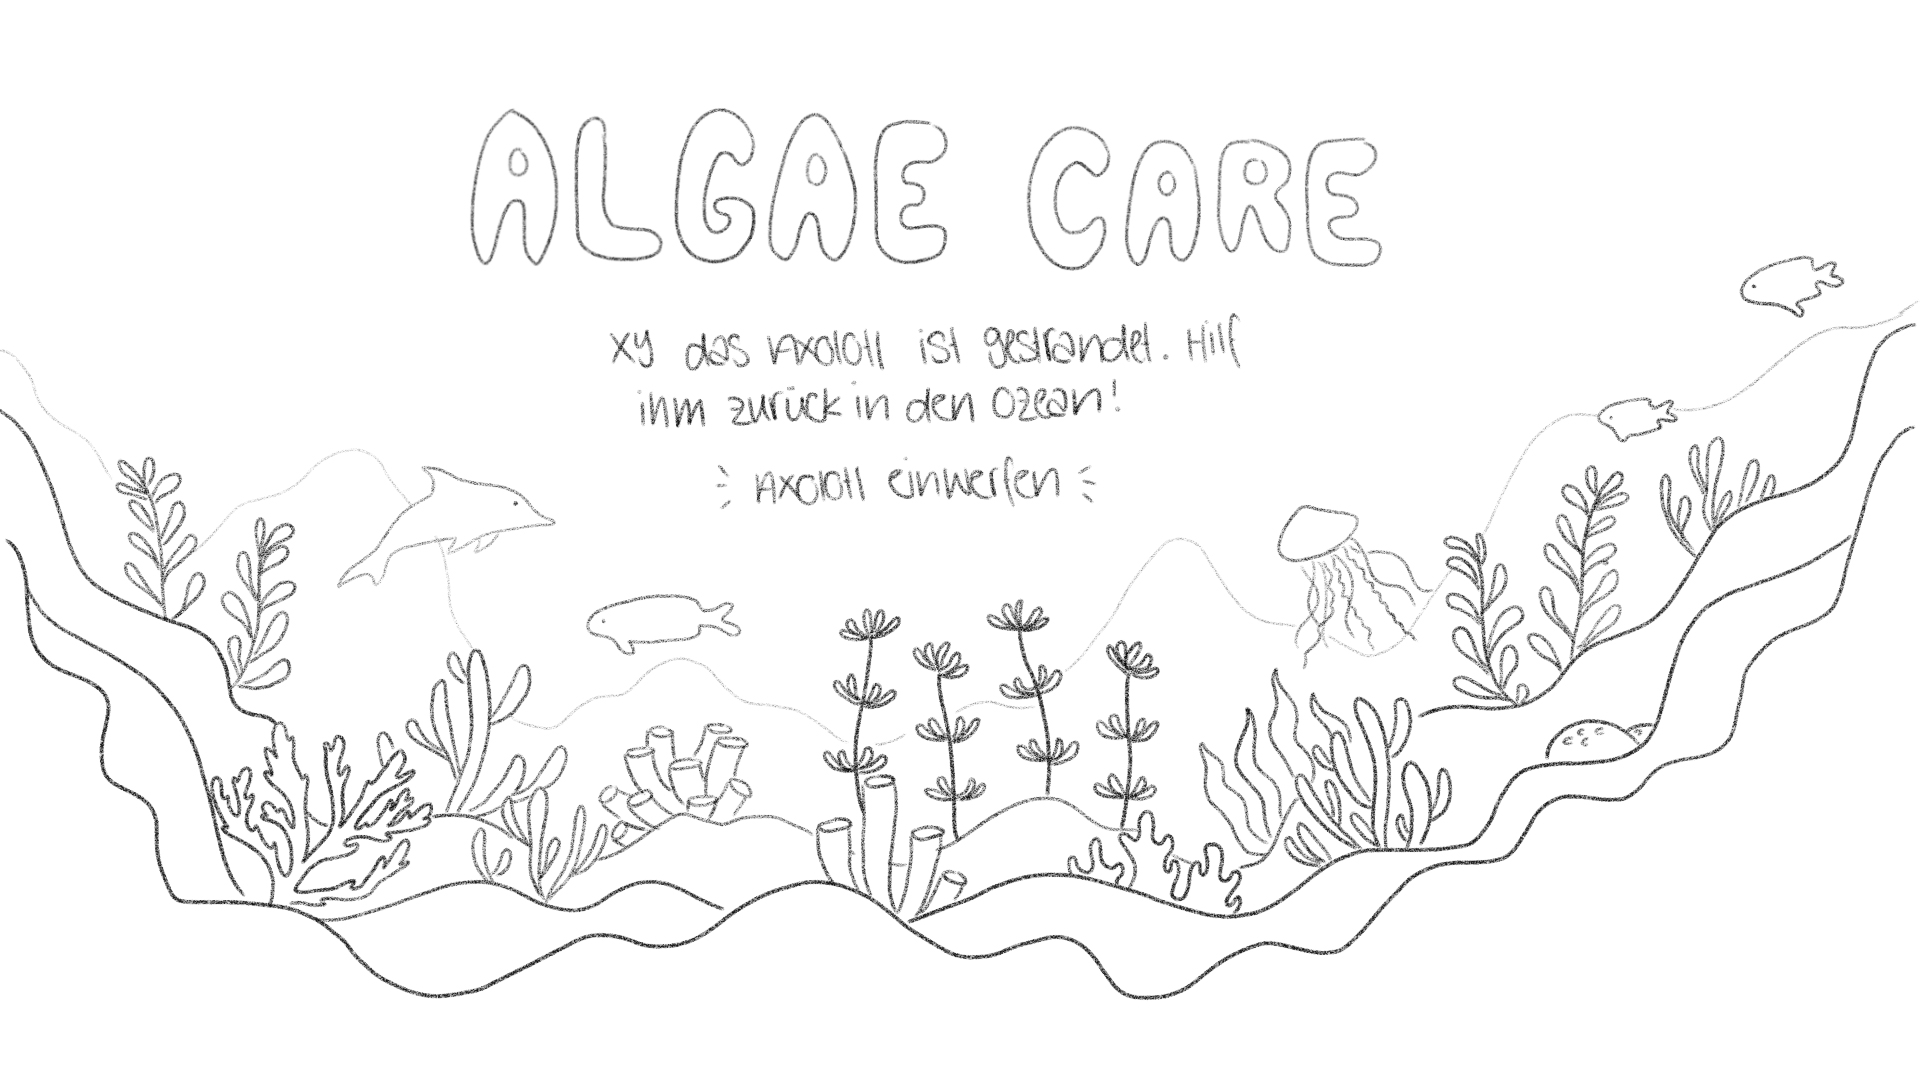 ALGAE CARE
xy das Axolotl ist gestrandet. Hilf
ihm zurück in den Ozean!
Axolotl einwerfen